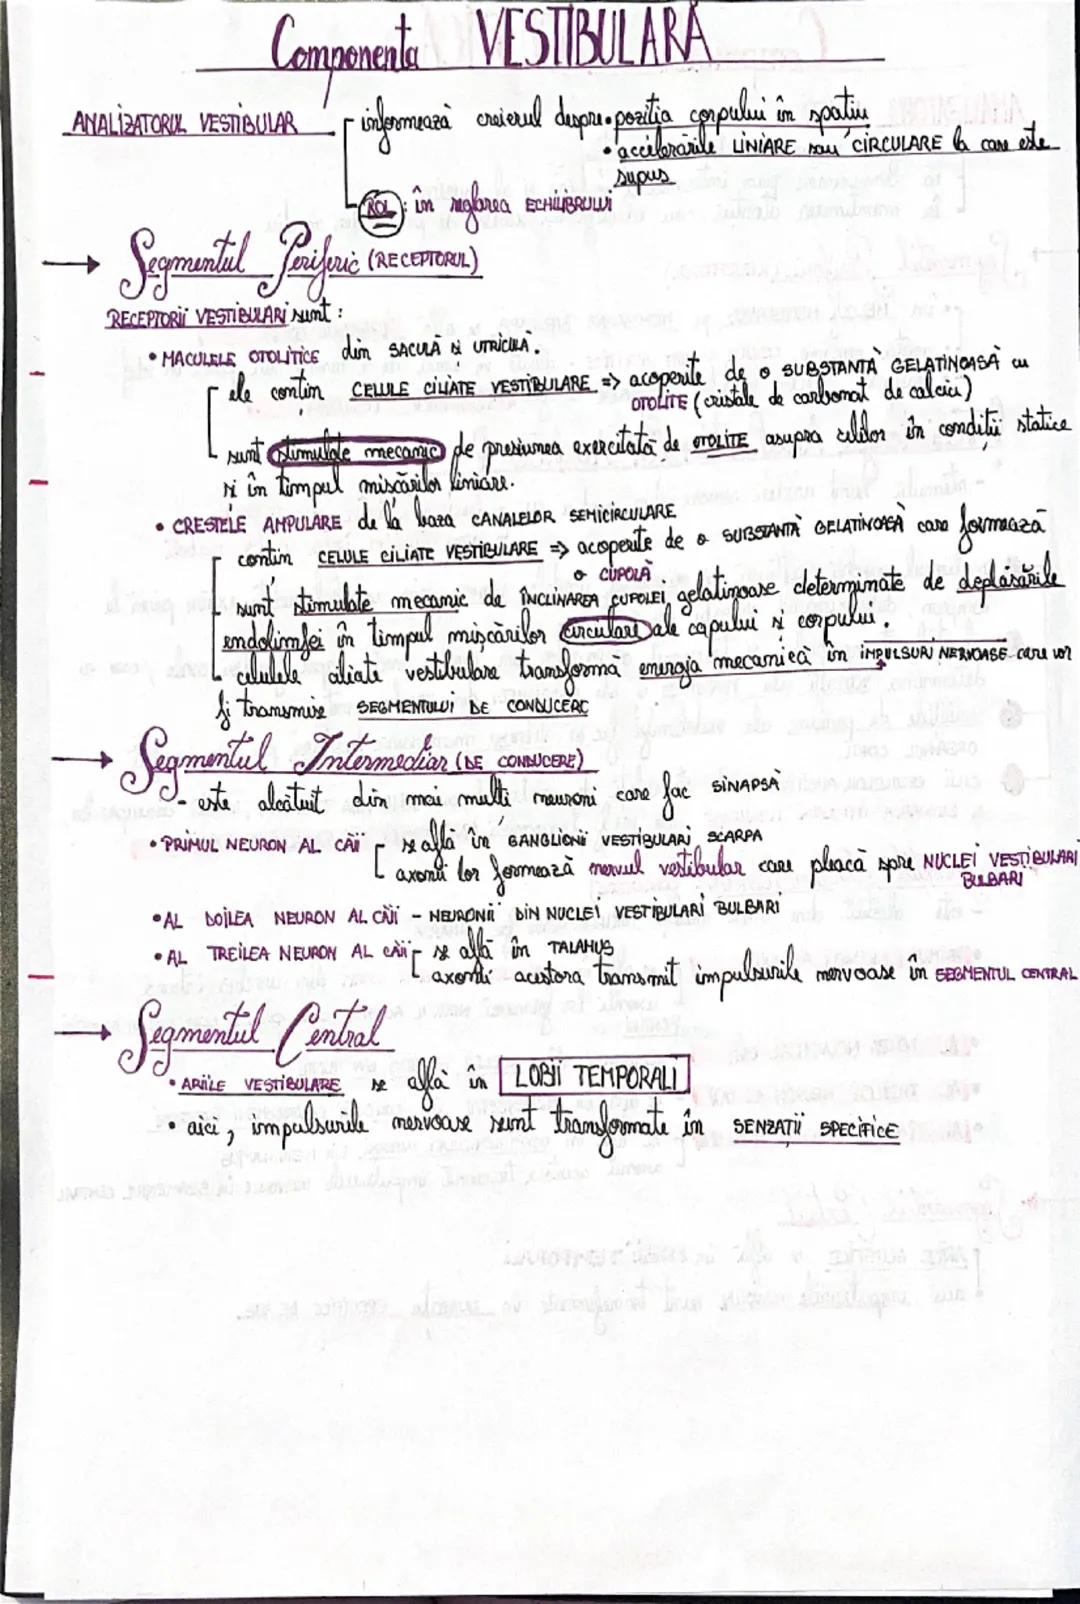 Componenta VESTIBULARĂ
ANALIZATORUL VESTIBULAR
informează creierul despre • poziția corpului în spațiu
• accelerările LINIARE sau CIRCULARE la care este
supus
ROL: în reglarea ECHILIBRULUI
→ Segmentul Periferic (RECEPTORUL)
RECEPTORII VESTIBULARI sunt:
• MACULELE OTOLITICE din SACULĂ și UTRICULĂ.
ele conțin CELULE CILIATE VESTIBULARE => acoperite de o SUBSTANȚĂ GELATINOASĂ cu
OTOLITE (cristale de carbonat de calciu)
sunt stimulate mecanic de presiunea exercitată de OTOLITE asupra celulelor în condiții statice
și în timpul mișcărilor liniare.
• CRESTELE AMPULARE de la baza CANALELOR SEMICIRCULARE
conțin CELULE CILIATE VESTIBULARE => acoperite de o SUBSTANȚĂ GELATINOASĂ care formează
o CUPOLĂ
sunt stimulate mecanic de ÎNCLINAREA CUPOLEI gelatinoase determinate de deplasările
endolimfei în timpul mișcărilor circulare ale capului și corpului.
celulele ciliate vestibulare transformă energia mecanică în IMPULSURI NERVOASE care vor
fi transmise SEGMENTULUI DE CONDUCERE
→ Segmentul Intermediar (DE CONDUCERE)
- este alcătuit din mai mulți neuroni care fac SINAPSĂ
• PRIMUL NEURON AL CĂII
se află în GANGLIONII VESTIBULARI SCARPA
axonii lor formează nervul vestibular care pleacă spre NUCLEI VESTIBULARI
BULBARI
• AL DOILEA NEURON AL CĂII - NEURONII DIN NUCLEI VESTIBULARI BULBARI
• AL TREILEA NEURON AL CĂII - se află în TALAMUS
axonii acestora transmit impulsurile nervoase în SEGMENTUL CENTRAL
→ Segmentul Central
• ARIILE VESTIBULARE se află în LOBII TEMPORALI
• aici, impulsurile nervoase sunt transformate în SENZAȚII SPECIFICE